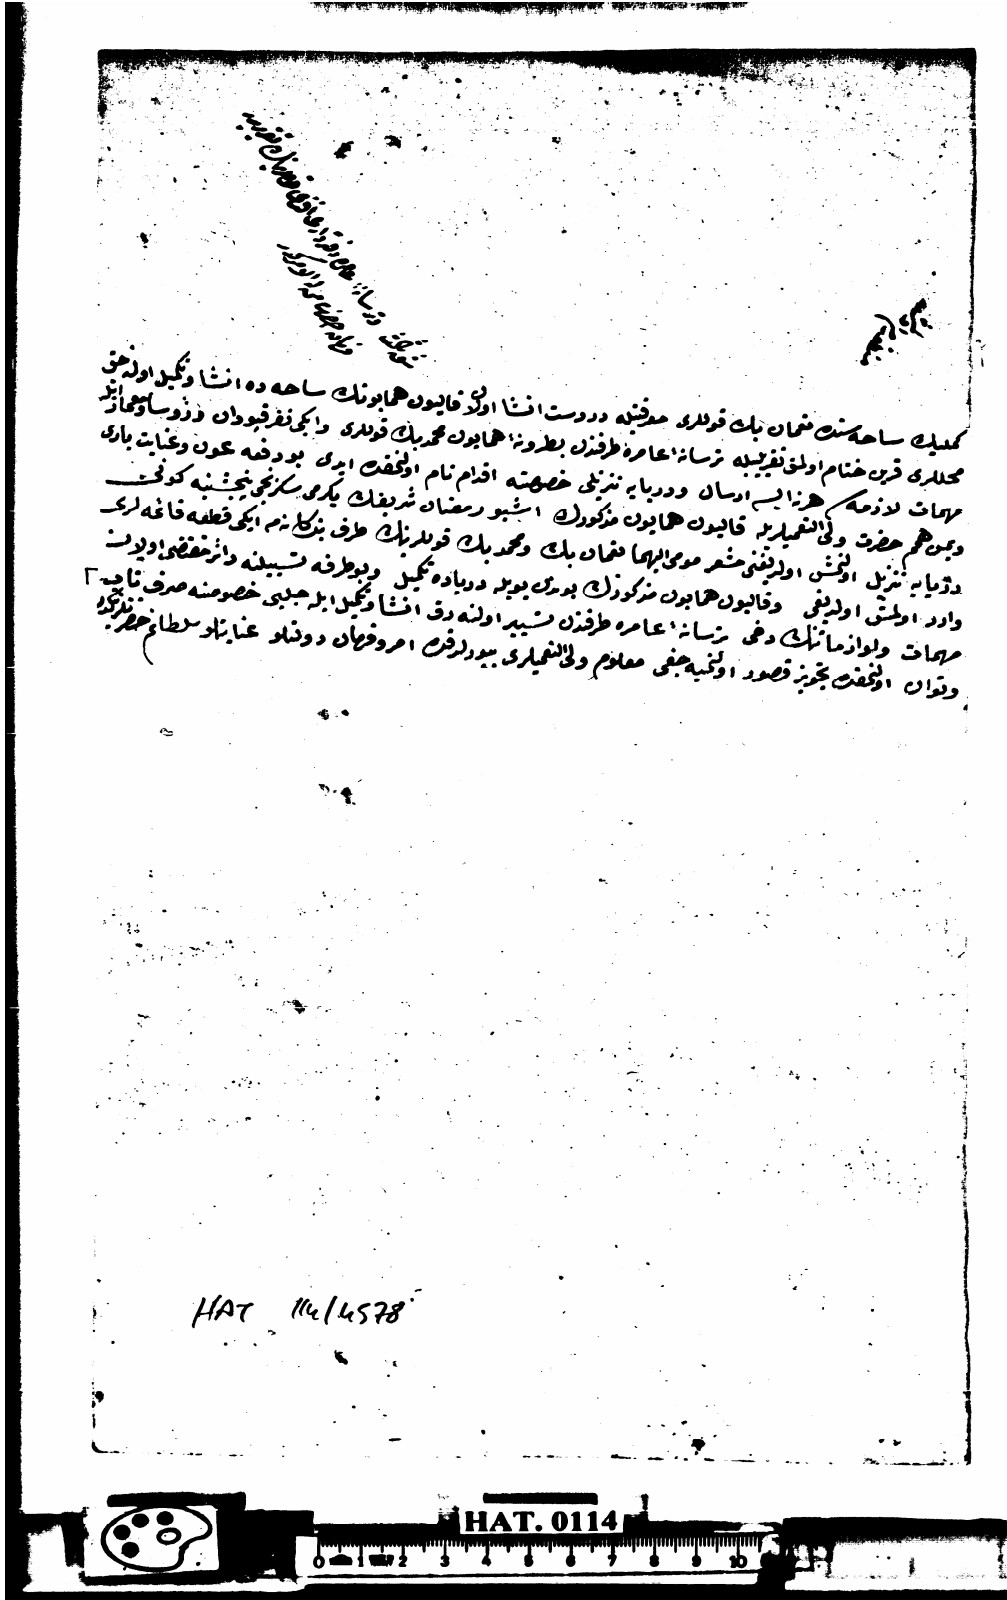 كمليك ساحه سنده نعمان بك قوللرى معرفتيله دردست انشا اولان قاليون همايونك ساحه ده انشا و تكميل اوله جق
محللرى قرين ختام اولمق تقريبيله ترسانه عامره طرفندن بطرونه همايون محمد بك قوللرى و ايكى نفر قپودان و رؤسا و معمار ايله
مهمات لازمه هرنه ايسه ارسال و دريايه تنزيلى خصوصنه اقدام تام اولنمقده ايدى بو دفعه عون و عنايت بارى
و يمن همم حضرت ولى النعميلريله قاليون همايون مذكورك اشبو رمضان شريفك يكرمى سكزنجى پنجشنبه كونى
دريايه تنزيل اولنمش اولديغنى مشعر مومى اليهما نعمان بك و محمد بك قوللرينك طرف بندكانه مه ايكى قطعه قائمه لرى
وارد اولمش اولديغى و قاليون همايون مذكورك بوندن بويله درياده تكميل و بو طرفه تسييرينه دائر مقتضى اولان
مهمات و لوازماتنك دخى ترسانه عامره طرفندن تسيير اولنه رق انشا و تكميل ايله جلبى خصوصنه صرف تاب
و توان اولنمقده تجويز قصور اولنميه جغى معلوم ولى النعميلرى بيورلدقده امر و فرمان دولتلو عنايتلو سلطانم حضرتلرينكدر
HAT 114/4578
HAT. 0114
0 1 2 3 4 5 6 7 8 9 10